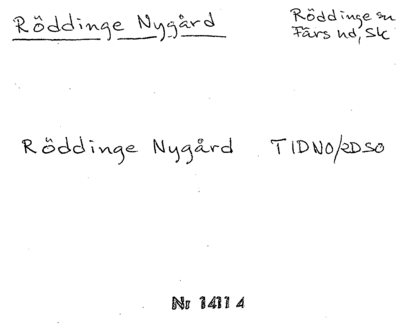 Röddinge Nygård
Röddinge sn
Färs hd, Sk
Röddinge Nygård TIDNO/2DSO
Nr 1411 4